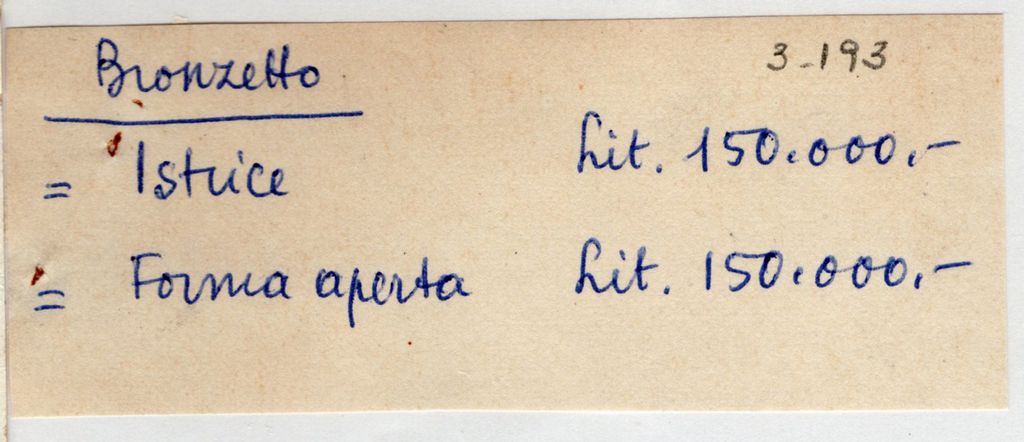 3-193
Bronzetto
= Istrice Lit. 150.000.-
= Forma aperta Lit. 150.000.-